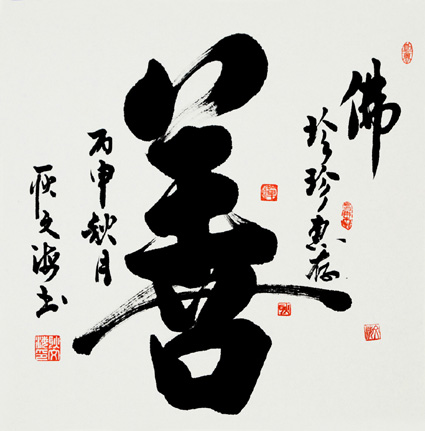 佛
珍珍惠存
善
丙申秋月
耿文海书